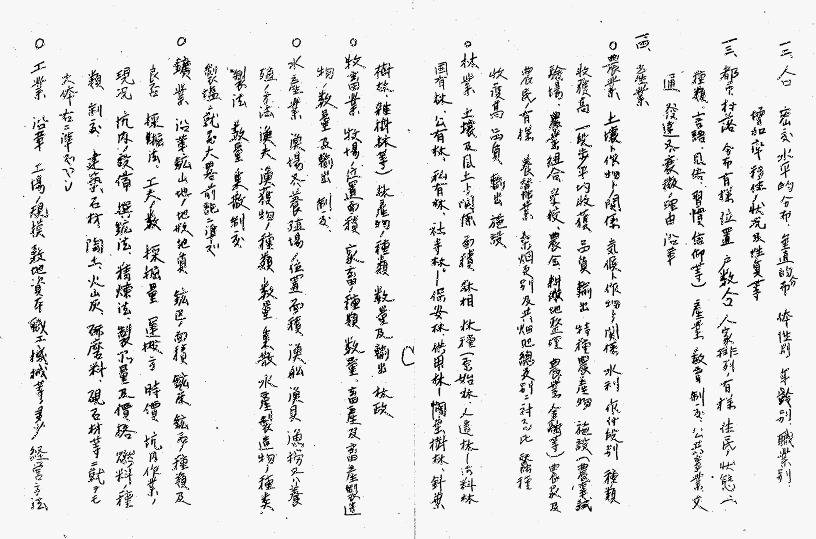 一二、人口 密度 水平的分布 垂直的分布 体性別 年齢別 職業別
増加率 移住ノ状況及性質等
一三、都市村落 分布ノ有様 位置 戸数人口 人家排列ノ有様 住民ノ状態(人
種類、言語、風俗、習慣、信仰等) 産業、教育制度、公共事業、交
通 発達又ハ衰微ノ理由 沿革
一四、産業
○農業 土壌ト作物トノ関係 気候ト作物トノ関係 水利 作付段別 種類
収穫高 一段歩平均収穫 品質 輸出 特種農産物 施設(農事試
験場、農業組合、学校、農会、耕地整理 農業金融等) 農家及
農民ノ有様 養蚕業 桑畑反別及其畑地総反別ニ対スル比 蚕種
収繭高 品質 輸出 施設
○林業 土壌及風土トノ関係 面積 林相 林種(原始林 人造林―
国有林、公有林、私有林、社寺林―保安林 供用林―闊葉樹林、針葉
樹林、雑樹林等) 林産物ノ種類 数量及輸出 林政
○牧畜業 牧場ノ位置面積 家畜ノ種類 数量、畜産及畜産製造
物ノ数量及輸出 制度
○水産業 漁場又ハ養殖場ノ位置面積 漁船 漁具 漁撈又ハ養
殖ノ方法 漁夫 漁獲物ノ種類 数量 集散 水産製造物ノ種類
製法 数量 集散 制度
製塩ニ就テハ大畧前記ニ準ズ
○鑛業 沿革 鉱山地ノ地形地質 鉱区ノ面積 鉱床 鉱石ノ種類及
良否 採鉱法、工夫ノ数 採掘量 運搬 時價 坑内作業ノ
現況 坑内設備 撰鉱法、精煉法 製品ノ量及價格 燃料ノ種
類 制度 建築石材、陶土、火山灰 研磨料、硯石材等ニ就テモ
大体右ニ準ズベシ
○工業 沿革 工場ノ規模 敷地 資本 職工 機械等ノ多少 経営方法